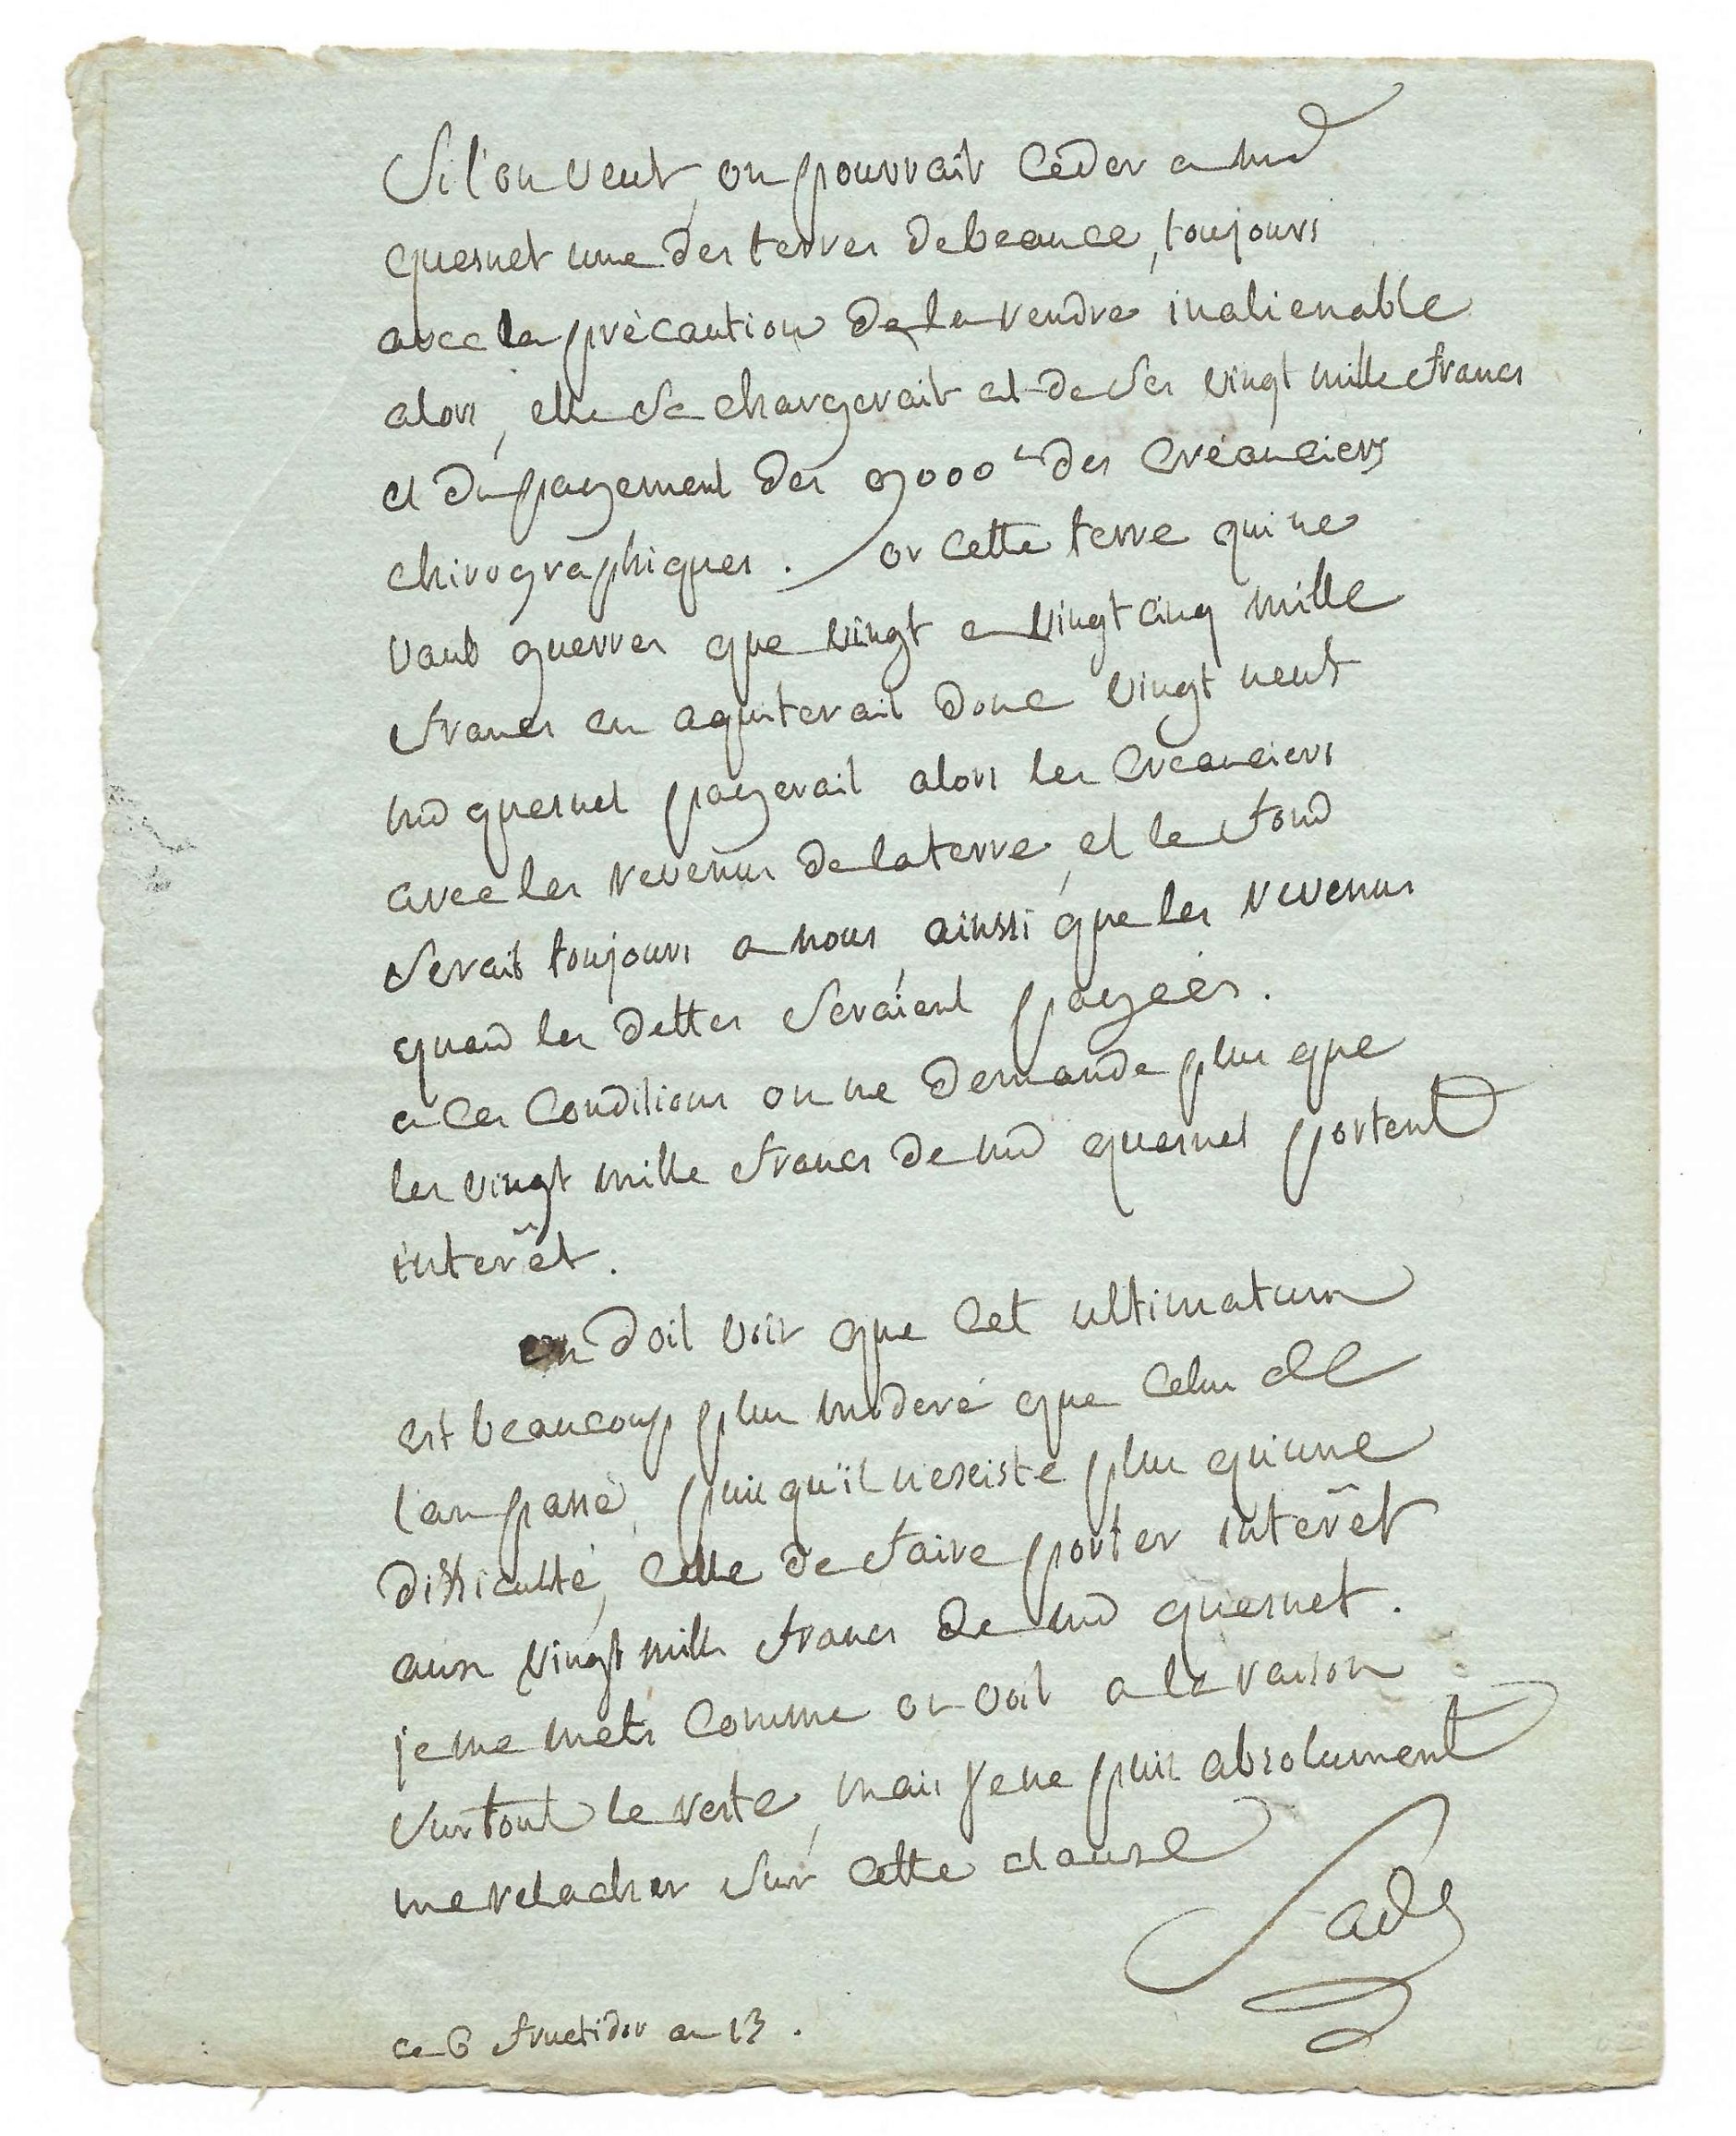 Si l'on veut, on pourrait céder a md
quesnet une des terres de beauce, toujours
avec la précaution de la rendre inalienable
alors, elle se chargerait et de ses vingt mille francs
et du payement des 9000 des créanciers
chirographiques. or cette terre qui ne
vaut guerres que vingt a vingt cinq mille
francs en aquiterait donc vingt neuf
md quesnet payerait alors les créanciers
avec les revenus de la terre, et le fond
serait toujours a nous, ainssi que les revenus
quand les dettes seraient payées.
a ces conditions on ne demande plus que
les vingt mille francs de md quesnet portent
interêt.
on doit voir que cet ultimatum
est beaucoup plus moderé que celui de
l'an passé, puis qu'il n'existe plus qu'une
difficulté, celle de faire porter interêt
aux vingt mille francs de md quesnet.
je me mets comme on voit a la raison
sur tout le reste, mais je ne puis absolument
me relacher sur cette clause
Sade
ce 6 fructidor an 13.